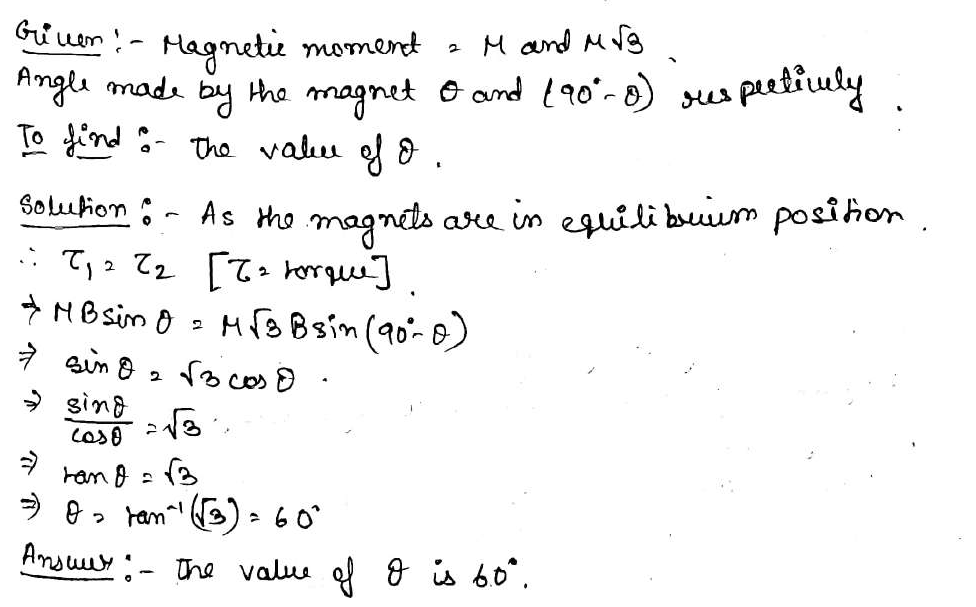 Given :- Magnetic moment = M and M√3
Angle made by the magnet θ and (90°-θ) respectively.
To find :- The value of θ.
Solution :- As the magnets are in equilibrium position.
∴ τ₁ = τ₂ [τ = torque]
⇒ MB sin θ = M√3 B sin (90°-θ)
⇒ sin θ = √3 cos θ.
⇒ sinθ/cosθ = √3
⇒ tan θ = √3
⇒ θ = tan⁻¹(√3) = 60°
Answer :- The value of θ is 60°.